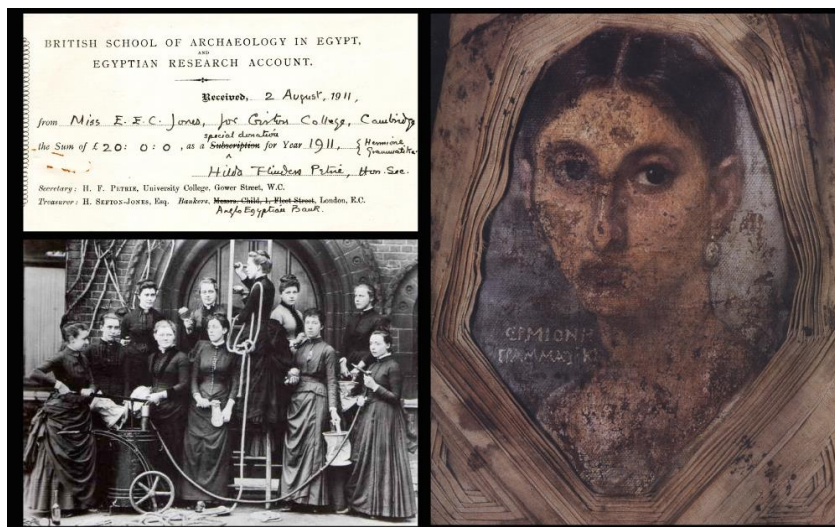 BRITISH SCHOOL OF ARCHAEOLOGY IN EGYPT,
AND
EGYPTIAN RESEARCH ACCOUNT.
Received, 2 August, 1911,
from Miss E. E. C. Jones, for Girton College, Cambridge
special donation
the Sum of £20: 0: 0, as a Subscription for Year 1911, { Hermione Grammatike
Hilda Flinders Petrie, Hon. Sec.
Secretary: H. F. PETRIE, University College, Gower Street, W.C.
Treasurer: H. SEFTON-JONES, Esq. Bankers, Messrs. Child, 1, Fleet Street, London, E.C.
Anglo Egyptian Bank.
ΕΡΜΙΟΝΗ
ΓΡΑΜΜΑΤΙΚΗ